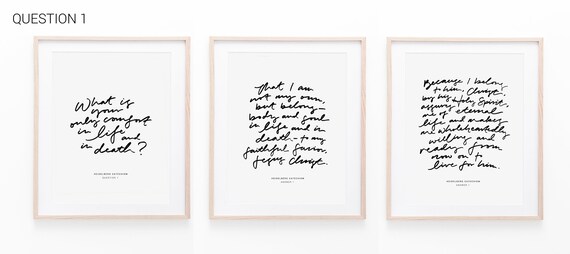 QUESTION 1
What is
your
only comfort
in life
and
in death?
HEIDELBERG CATECHISM
QUESTION 1
That I am
not my own,
but belong—
body and soul
in life and in
death— to my
faithful Savior,
Jesus Christ.
HEIDELBERG CATECHISM
ANSWER 1
Because I belong
to him, Christ
by his Holy Spirit,
assures me of eternal
life and makes
me wholeheartedly
willing and
ready from
now on to
live for him.
HEIDELBERG CATECHISM
ANSWER 1